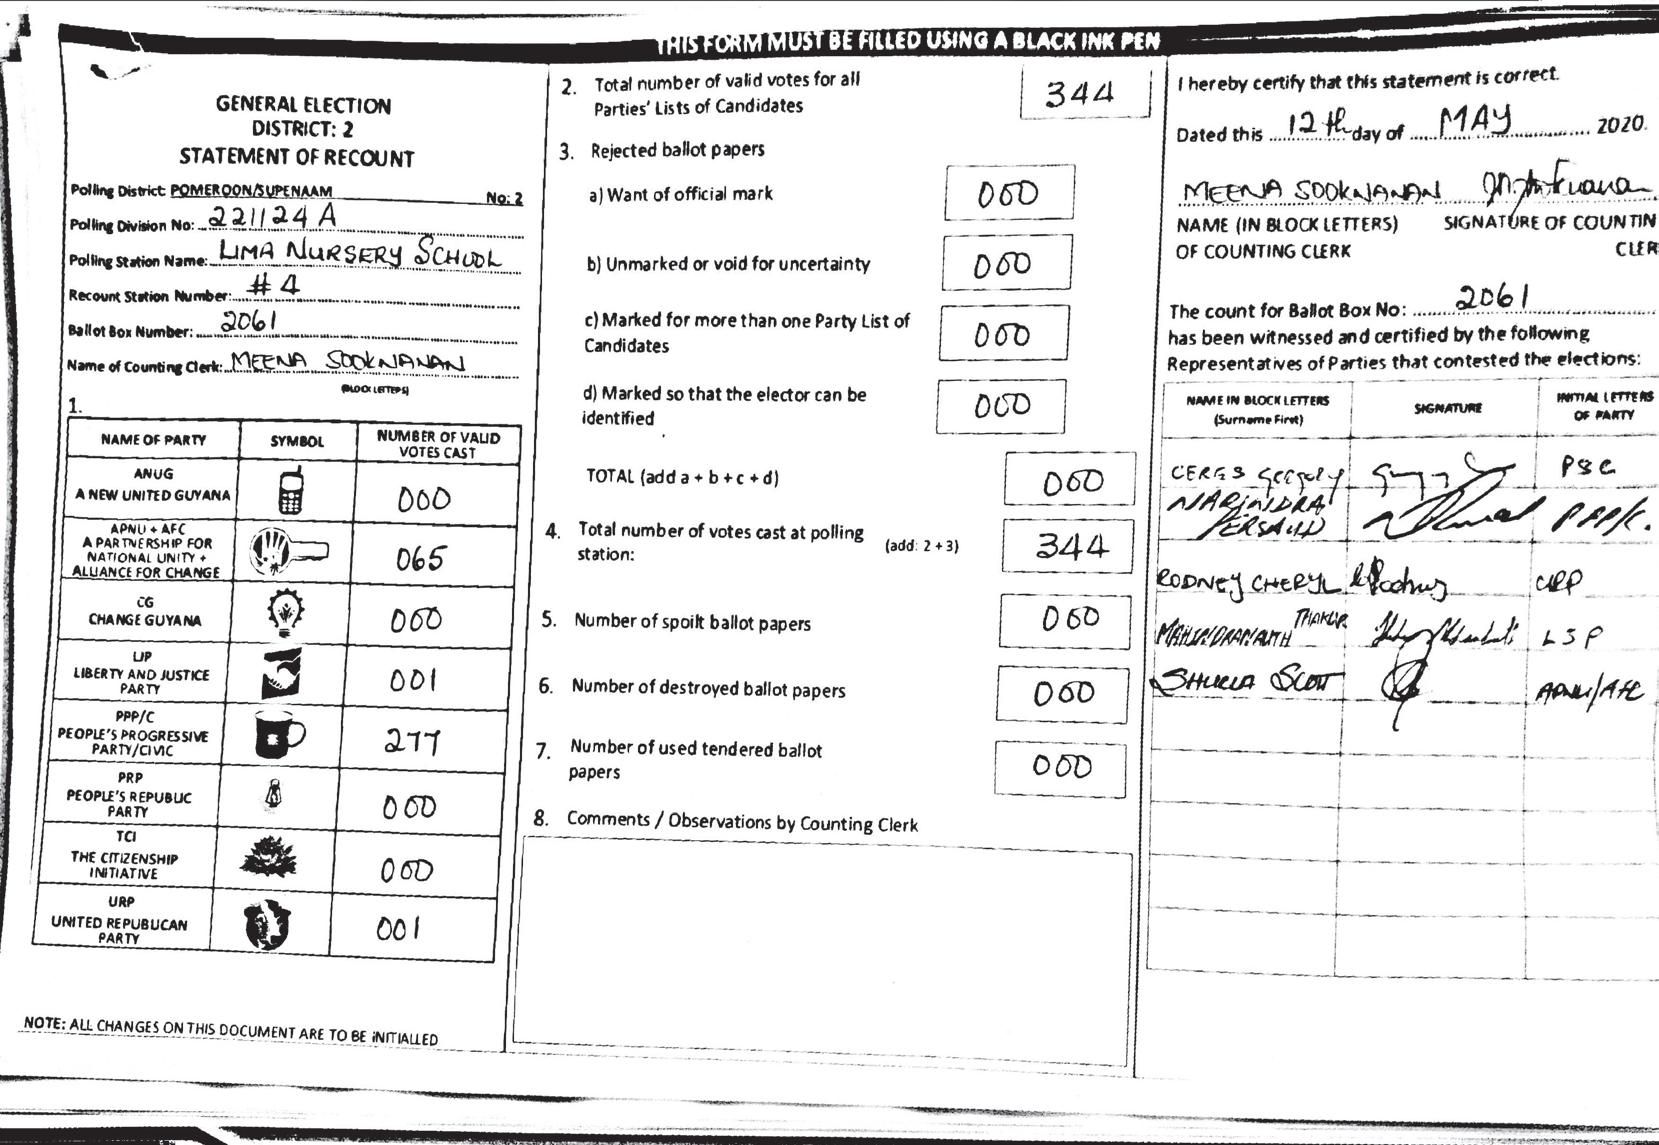 THIS FORM MUST BE FILLED USING A BLACK INK PEN
GENERAL ELECTION
DISTRICT: 2
STATEMENT OF RECOUNT
Polling District: POMEROON/SUPENAAM No: 2
Polling Division No: 221124 A
Polling Station Name: LIMA NURSERY SCHOOL
Recount Station Number: # 4
Ballot Box Number: 2061
Name of Counting Clerk: MEENA SOOKNANAN
(BLOCK LETTERS)
1.
NAME OF PARTY SYMBOL NUMBER OF VALID VOTES CAST
ANUG
A NEW UNITED GUYANA 000
APNU + AFC
A PARTNERSHIP FOR
NATIONAL UNITY +
ALLIANCE FOR CHANGE 065
CG
CHANGE GUYANA 000
LJP
LIBERTY AND JUSTICE
PARTY 001
PPP/C
PEOPLE'S PROGRESSIVE
PARTY/CIVIC 277
PRP
PEOPLE'S REPUBLIC
PARTY 000
TCI
THE CITIZENSHIP
INITIATIVE 000
URP
UNITED REPUBLICAN
PARTY 001
NOTE: ALL CHANGES ON THIS DOCUMENT ARE TO BE INITIALLED
2. Total number of valid votes for all
Parties' Lists of Candidates 344
3. Rejected ballot papers
a) Want of official mark 000
b) Unmarked or void for uncertainty 000
c) Marked for more than one Party List of
Candidates 000
d) Marked so that the elector can be
identified 000
TOTAL (add a + b + c + d) 000
4. Total number of votes cast at polling
station: (add: 2 + 3) 344
5. Number of spoilt ballot papers 000
6. Number of destroyed ballot papers 000
7. Number of used tendered ballot
papers 000
8. Comments / Observations by Counting Clerk
I hereby certify that this statement is correct.
Dated this 12th day of MAY 2020.
MEENA SOOKNANAN
NAME (IN BLOCK LETTERS) SIGNATURE OF COUNTIN
OF COUNTING CLERK CLER
The count for Ballot Box No: 2061
has been witnessed and certified by the following
Representatives of Parties that contested the elections:
NAME IN BLOCK LETTERS
(Surname First) SIGNATURE INITIAL LETTERS
OF PARTY
CERES Gregory PSC
NARINDRA
PERSAUD PPP/C.
RODNEY CHERYL URP
THAKUR
L J P
SCOTT APNU/AFC